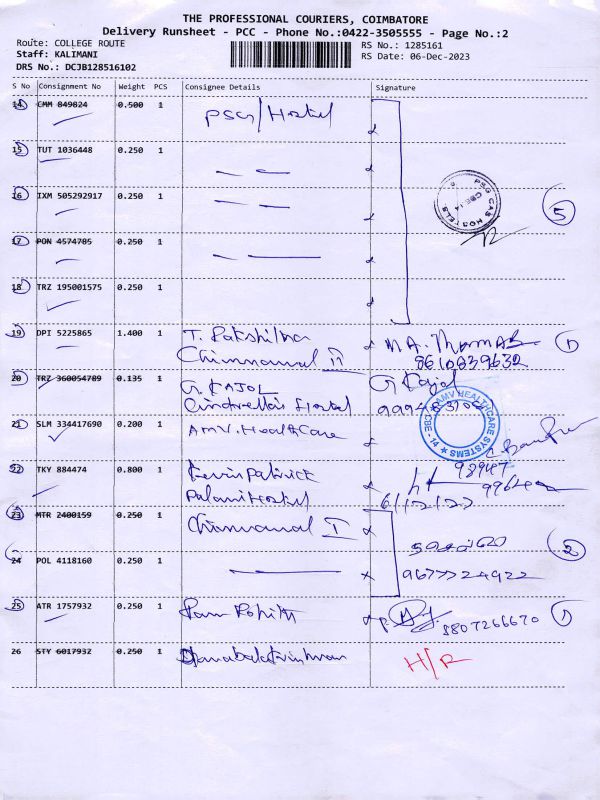 THE PROFESSIONAL COURIERS, COIMBATORE
Delivery Runsheet - PCC - Phone No.:0422-3505555 - Page No.:2
Route: COLLEGE ROUTE
RS No.: 1285161
Staff: KALIMANI
RS Date: 06-Dec-2023
DRS No.: DCJB128516102
S No Consignment No Weight PCS Consignee Details Signature
14 CMM 849824 0.500 1 PSG/Hostel
15 TUT 1036448 0.250 1
16 IXM 505292917 0.250 1
PSG CAS HOSTELS
CBE-14
5
17 PON 4574785 0.250 1
18 TRZ 195001575 0.250 1
19 DPI 5225865 1.400 1 T. Rakshitha M.A. Thomas 1
Chinnamal II 8610839632
20 TRZ 360054789 0.135 1 G. KAJOL G Kajol
Cindrella's Hostel
21 SLM 334417690 0.200 1 AMV. HealthCare
AMV HEALTHCARE SYSTEMS CBE-14
22 TKY 884474 0.800 1 Kevin Patrick 98947
Palani Hostel 6/12/23
23 MTR 2400159 0.250 1 Chinnamal I
2
24 POL 4118160 0.250 1 9677724922
25 ATR 1757932 0.250 1 Ram Rohith 8807266670 1
26 STY 6017932 0.250 1 H/R